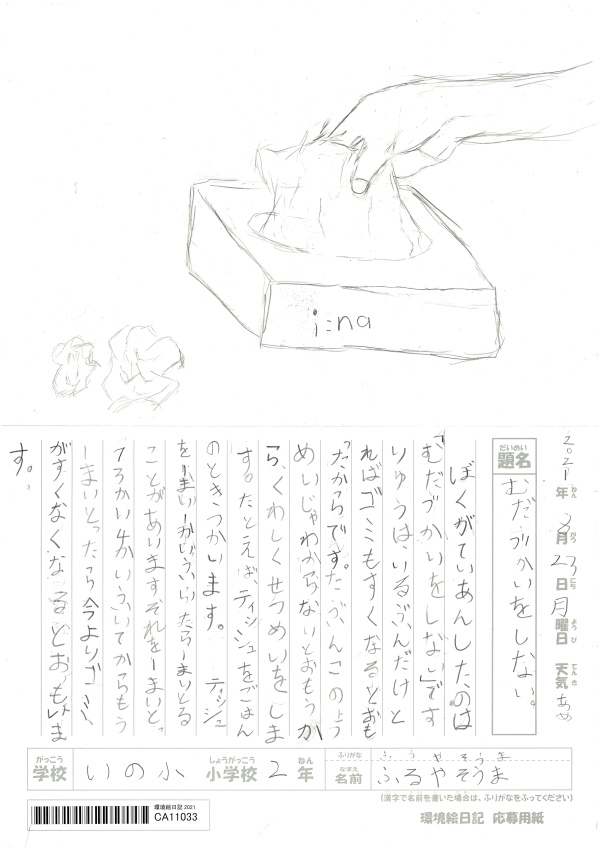 i:na
2021年 8月 23日 月曜日 天気 あめ
ねん がつ にち ようび てんき
だいめい
題名
むだづかいをしない。
ぼくがていあんしたのは
「むだづかいをしない」です
りゆうは、いるぶんだけと
ればゴミもすくなるとおも
ったからです。たぶんこのせつ
めいじゃわからないとおもうか
ら、くわしくせつめいをしま
す。たとえば、ティッシュをごはん
のときつかいます。ティッシュ
をーまいーかいふいたらーまいとる
ことがあいますそれをーまいとっ
て3かい4かいふいてからもう
ーまいとったら今よりゴミ
がすくなくなるとおもいま
す。
がっこう
学校
いの小
しょうがっこう
小学校
2
ねん
年
ふりがな
ふるやそうま
なまえ
名前
ふるやそうま
(漢字で名前を書いた場合は、ふりがなをふってください)
環境絵日記 2021
CA11033
環境絵日記 応募用紙